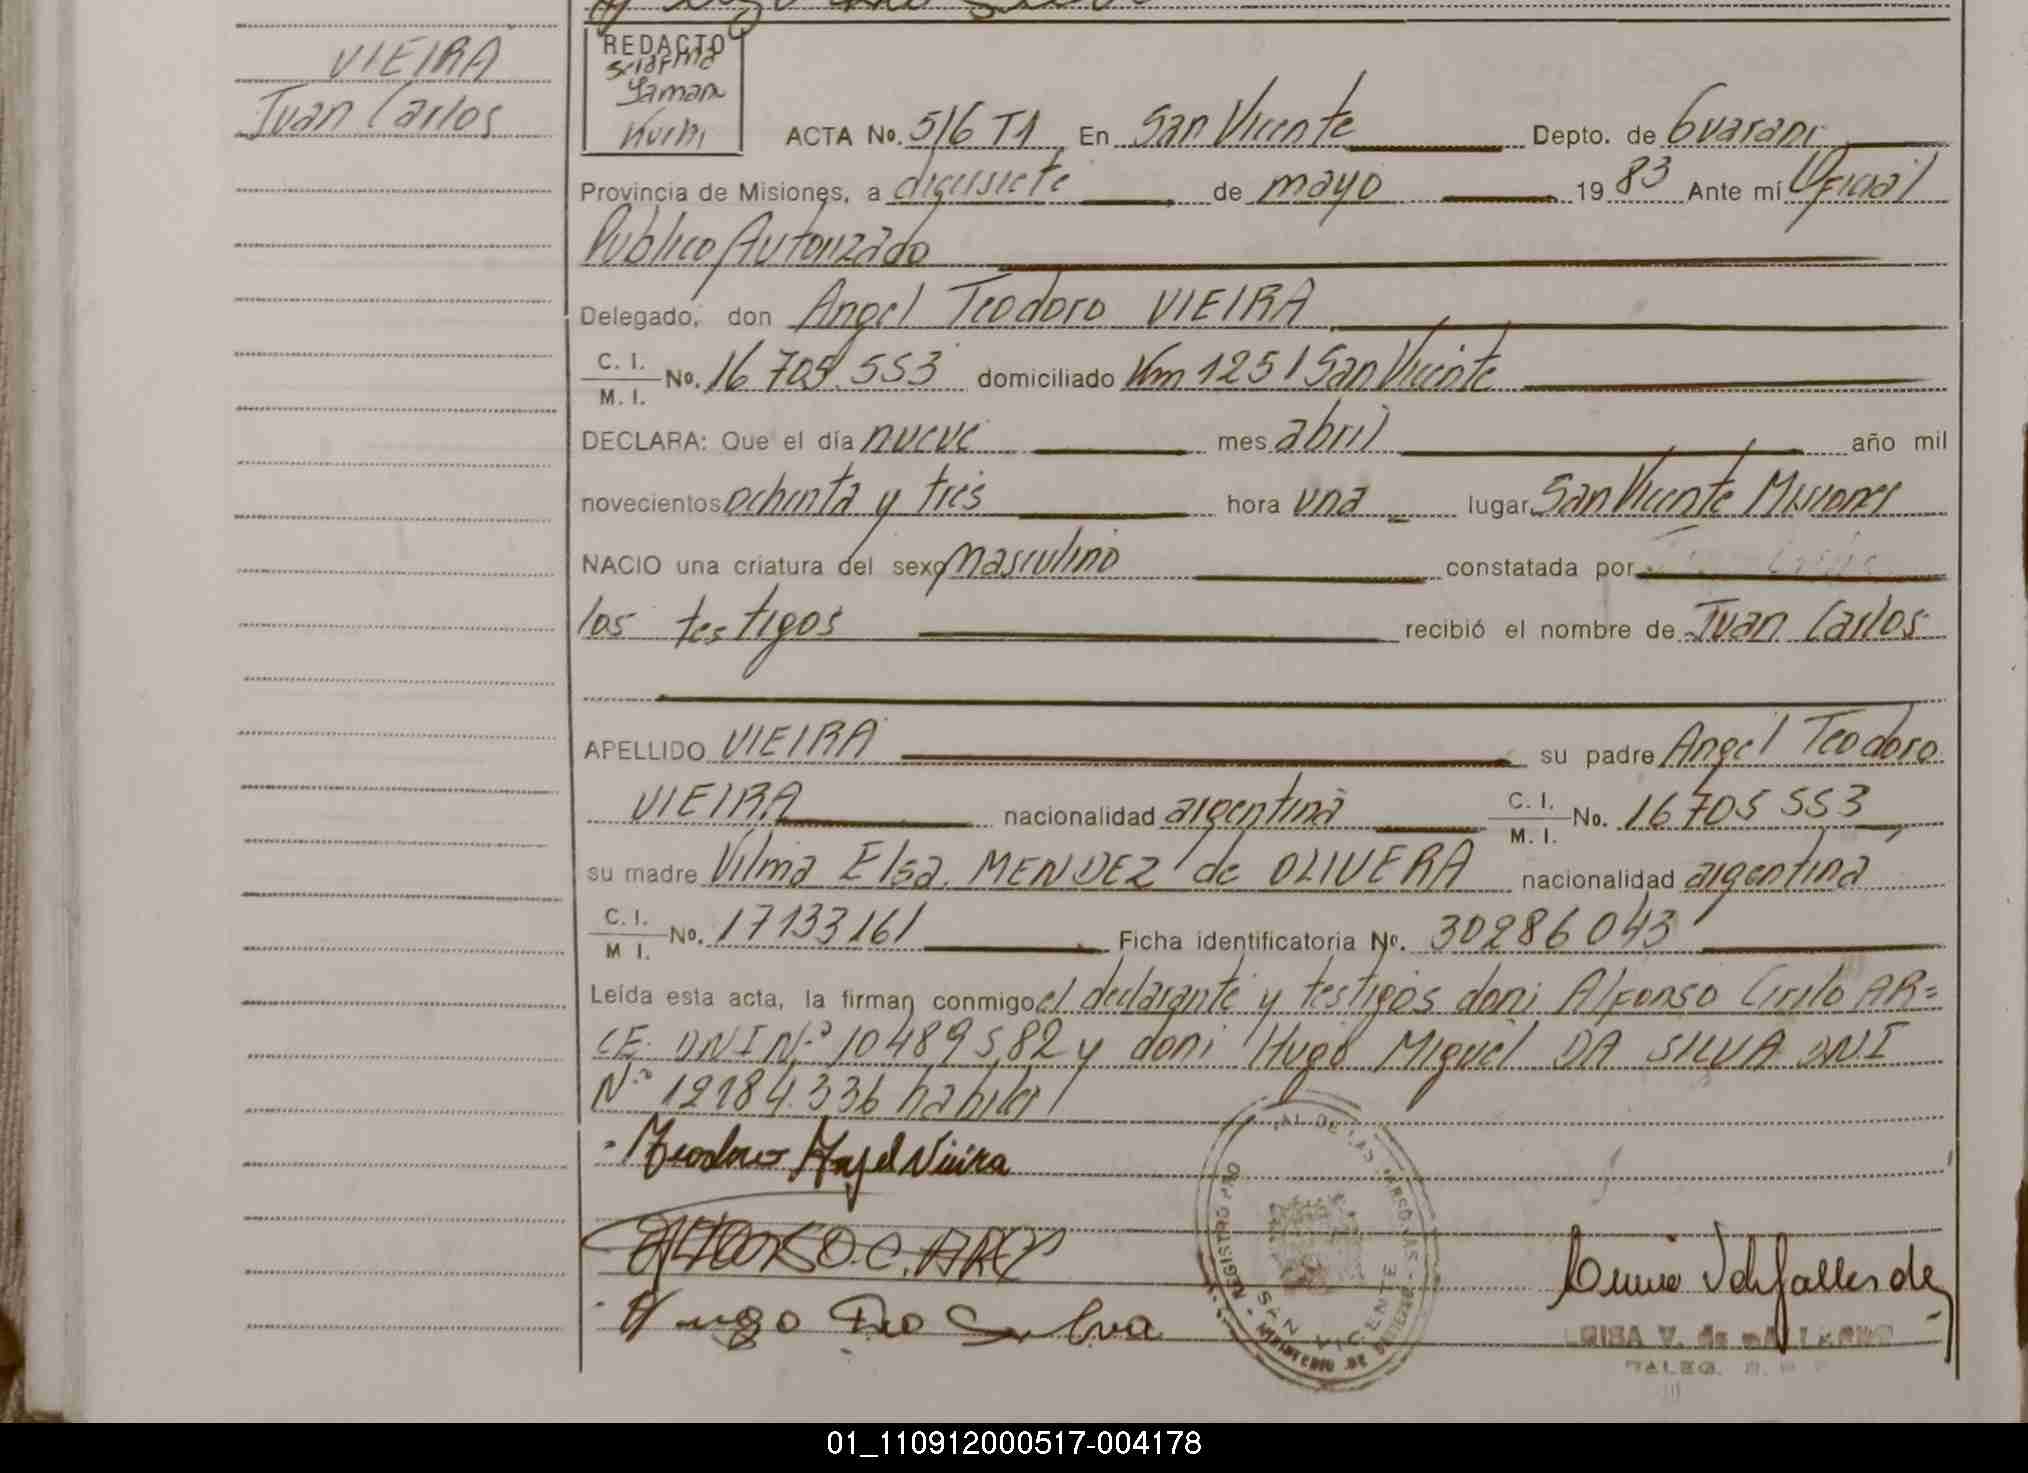 VIEIRA
Juan Carlos
REDACTO
ACTA No. 516 T1 En San Vicente Depto. de Guarani
Provincia de Misiones, a diecisiete de mayo 19 83 Ante mí Oficial
Publico Autorizado
Delegado, don Angel Teodoro VIEIRA
C. I.
M. I. No. 16 705 553 domiciliado Km 1251 San Vicente
DECLARA: Que el día nueve mes abril año mil
novecientos ochenta y tres hora una lugar San Vicente Misiones
NACIO una criatura del sexo masculino constatada por
los testigos recibió el nombre de Juan Carlos
APELLIDO VIEIRA su padre Angel Teodoro
VIEIRA nacionalidad argentina C. I. M. I. No. 16 705 553
su madre Vilma Elsa MENDEZ de OLIVERA nacionalidad argentina
C. I. M I. No. 17133161 Ficha identificatoria No. 30286043
Leída esta acta, la firman conmigo el declarante y testigos don: Alfonso Cirilo AR=
CE DNI Nº 10489582 y don: Hugo Miguel DA SILVA DNI
Nº 12184.336 habiles
Teodoro Angel Vieira
ALFONSO.C.ARCE
Hugo Da Silva
SAN VICENTE
01_110912000517-004178